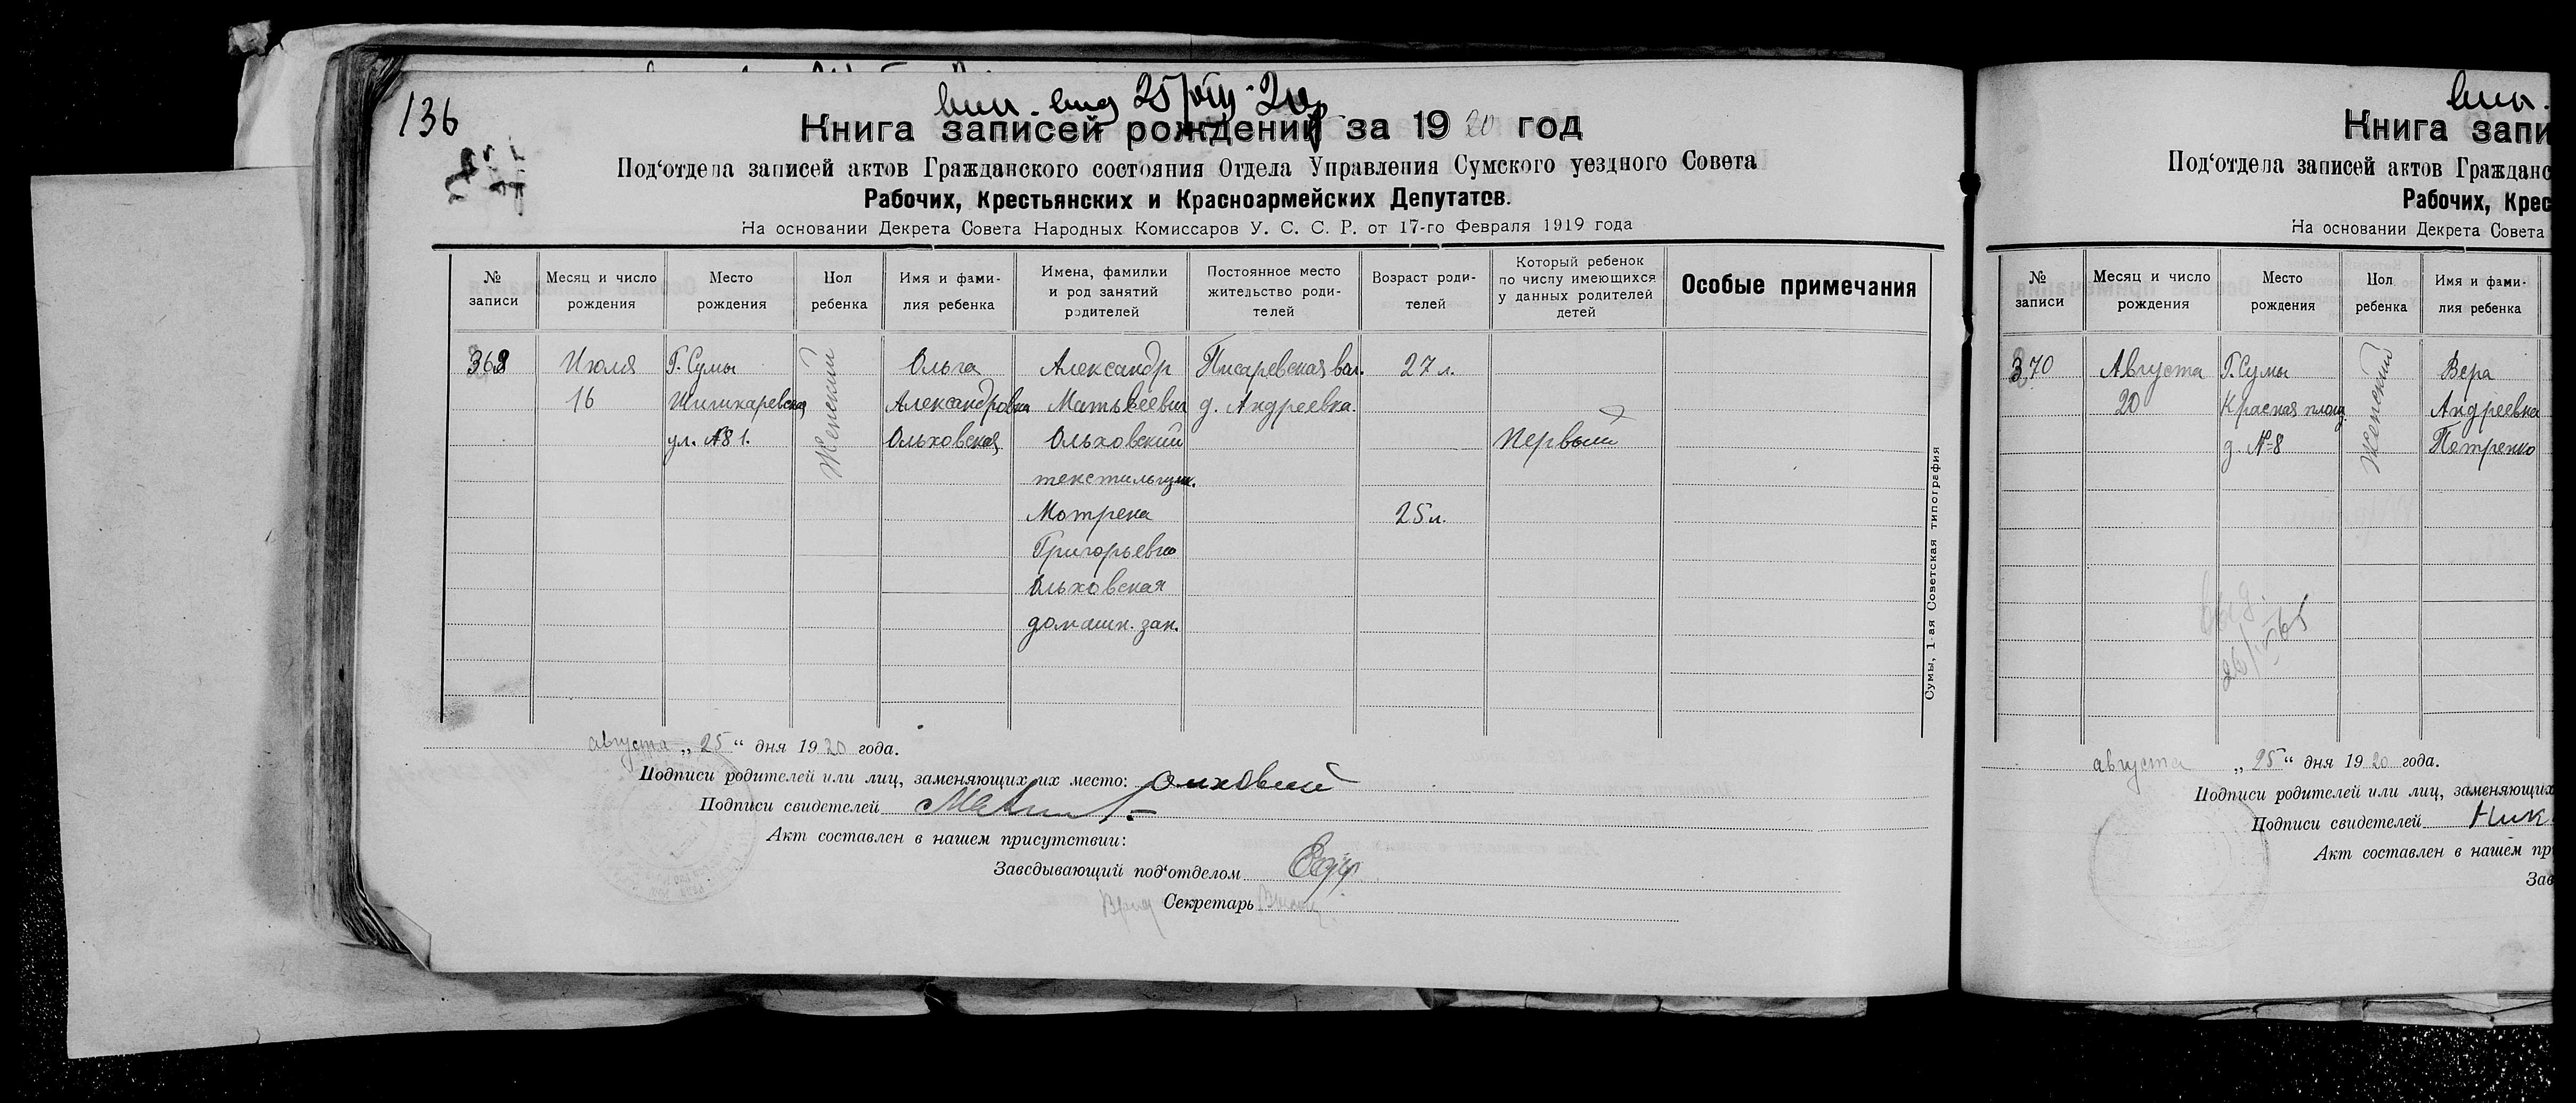 136
вып. вид 25/VIII-20г
Книга записей рождений за 1920 год
Под‘отдела записей актов Гражданского состояния Отдела Управления Сумского уездного Совета
Рабочих, Крестьянских и Красноармейских Депутатов.
На основании Декрета Совета Народных Комиссаров У. С. С. Р. от 17-го Февраля 1919 года
№ записи
Месяц и число рождения
Место рождения
Пол ребенка
Имя и фами-
лия ребенка
Имена, фамилии
и род занятий
родителей
Постоянное место
жительство роди-
телей
Возраст роди-
телей
Который ребенок
по числу имеющихся
у данных родителей
детей
Особые примечания
Июля
16
Г. Сумы
Шишкаревская
ул. № 81.
Женский
Ольга
Александровна
Ольховская
Александр
Матвеевич
Ольховский
текстильщик.
Мотрена
Григорьевна
Ольховская
домашн. зан.
Писаревская вол.
д. Андреевка.
27 л.
25 л.
Первый
Сумы, 1-ая Советская типография
августа „25“ дня 1920 года.
Подписи родителей или лиц, заменяющих их место:
Подписи свидетелей
Акт составлен в нашем присутствии:
Заведывающий под‘отделом
Секретарь
Книга запи
Под‘отдела записей актов Гражданс
Рабочих, Крес
На основании Декрета Совета
№ записи
Месяц и число рождения
Место рождения
Пол ребенка
Имя и фами-
лия ребенка
370
Августа
20
Г. Сумы
Красная площ.
д. № 8
Женский
Вера
Андреевна
Петренко
августа „25“ дня 1920 года.
Подписи родителей или лиц, заменяющих
Подписи свидетелей Ник
Акт составлен в нашем пр
Зав